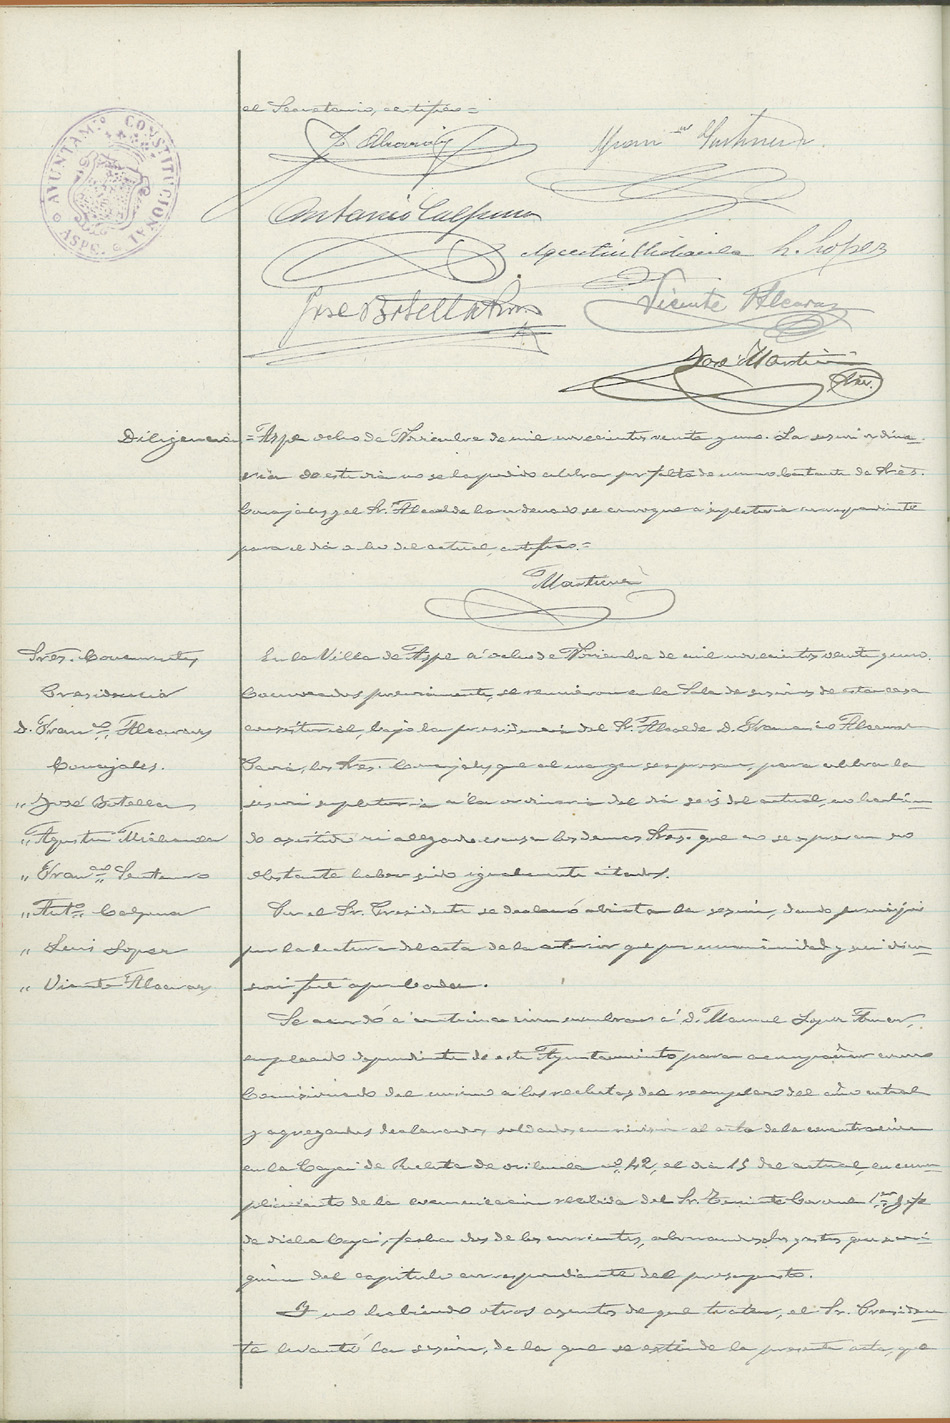 el Secretario, certifico=
AYUNTAM.to CONSTITUCIONAL
ASPE
F. Alcaraz
Fran.co Santanera
Antonio Calpena
Agustin Mirambell L. Lopez
José Botella
Vicente Alcaraz
José Martinez
Srio.
Diligencia = Aspe ocho de Noviembre de mil novecientos veinte y uno. La sesion ordina-
ria de este dia no se ha podido celebrar por falta de numero bastante de Sres.
Concejales y el Sr. Alcalde ha ordenado se convoque a supletoria correspondiente
para el dia ocho del actual, certifico.=
Martinez
Sres. Concurrentes
Presidencia
D. Fran.co Alcaraz
Concejales.
" José Botella
" Agustin
" Fran.co
" Ant.o Calpena
" Luis Lopez
" Vicente Alcaraz
En la Villa de Aspe a ocho de Noviembre de mil novecientos veinte y uno.
Convocados previamente, se reunieron en la Sala de sesiones de esta casa
consistorial, bajo la presidencia del Sr. Alcalde D. Francisco Alcaraz
los Sres. Concejales que al margen se expresan, para celebrar la
sesion supletoria a la ordinaria del dia seis del actual, no habien-
do asistido ni alegado escusa los demas Sres. que no se expresan no
obstante haber sido igualmente citados.
Por el Sr. Presidente se declaró abierta la sesion, dando principio
por la lectura del acta de la anterior que por unanimidad y sin discu-
sion fué aprobada.
Se acordó a continuacion nombrar a D. Manuel Lopez
empleado dependiente de este Ayuntamiento para acompañar como
Comisionado del mismo a los reclutas del reemplazo del año actual
y agregados declarados soldados en revision al acto de la concentracion
en la Caja de Recluta de Orihuela nº 42, el dia 15 del actual, en cum-
plimiento de la comunicacion recibida del Sr. Teniente Coronel 1.er Jefe
de dicha Caja, fecha dos de los corrientes, abonandose los gastos que se ori-
ginen del capitulo correspondiente del presupuesto.
Y no habiendo otros asuntos de que tratar, el Sr. Presiden-
te levantó la sesion, de la que se extiende la presente acta, que